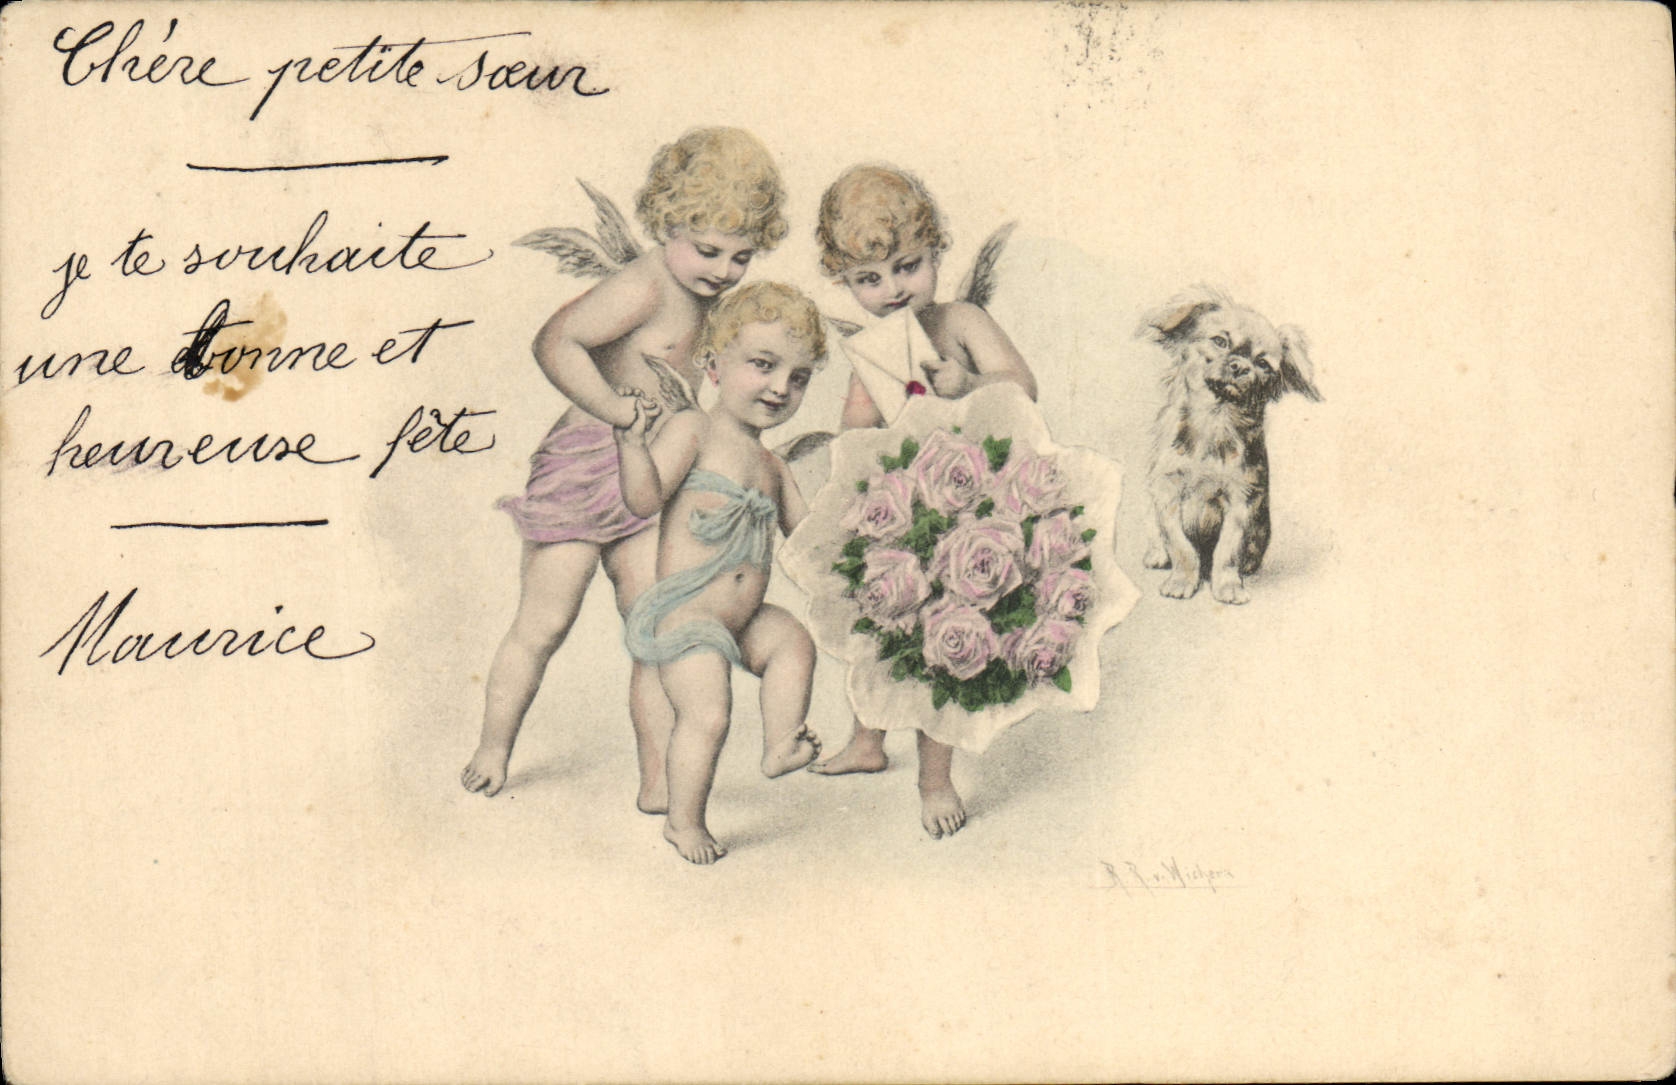 Chère petite sœur
je te souhaite
une bonne et
heureuse fête
Maurice
R. R. v. Wichera